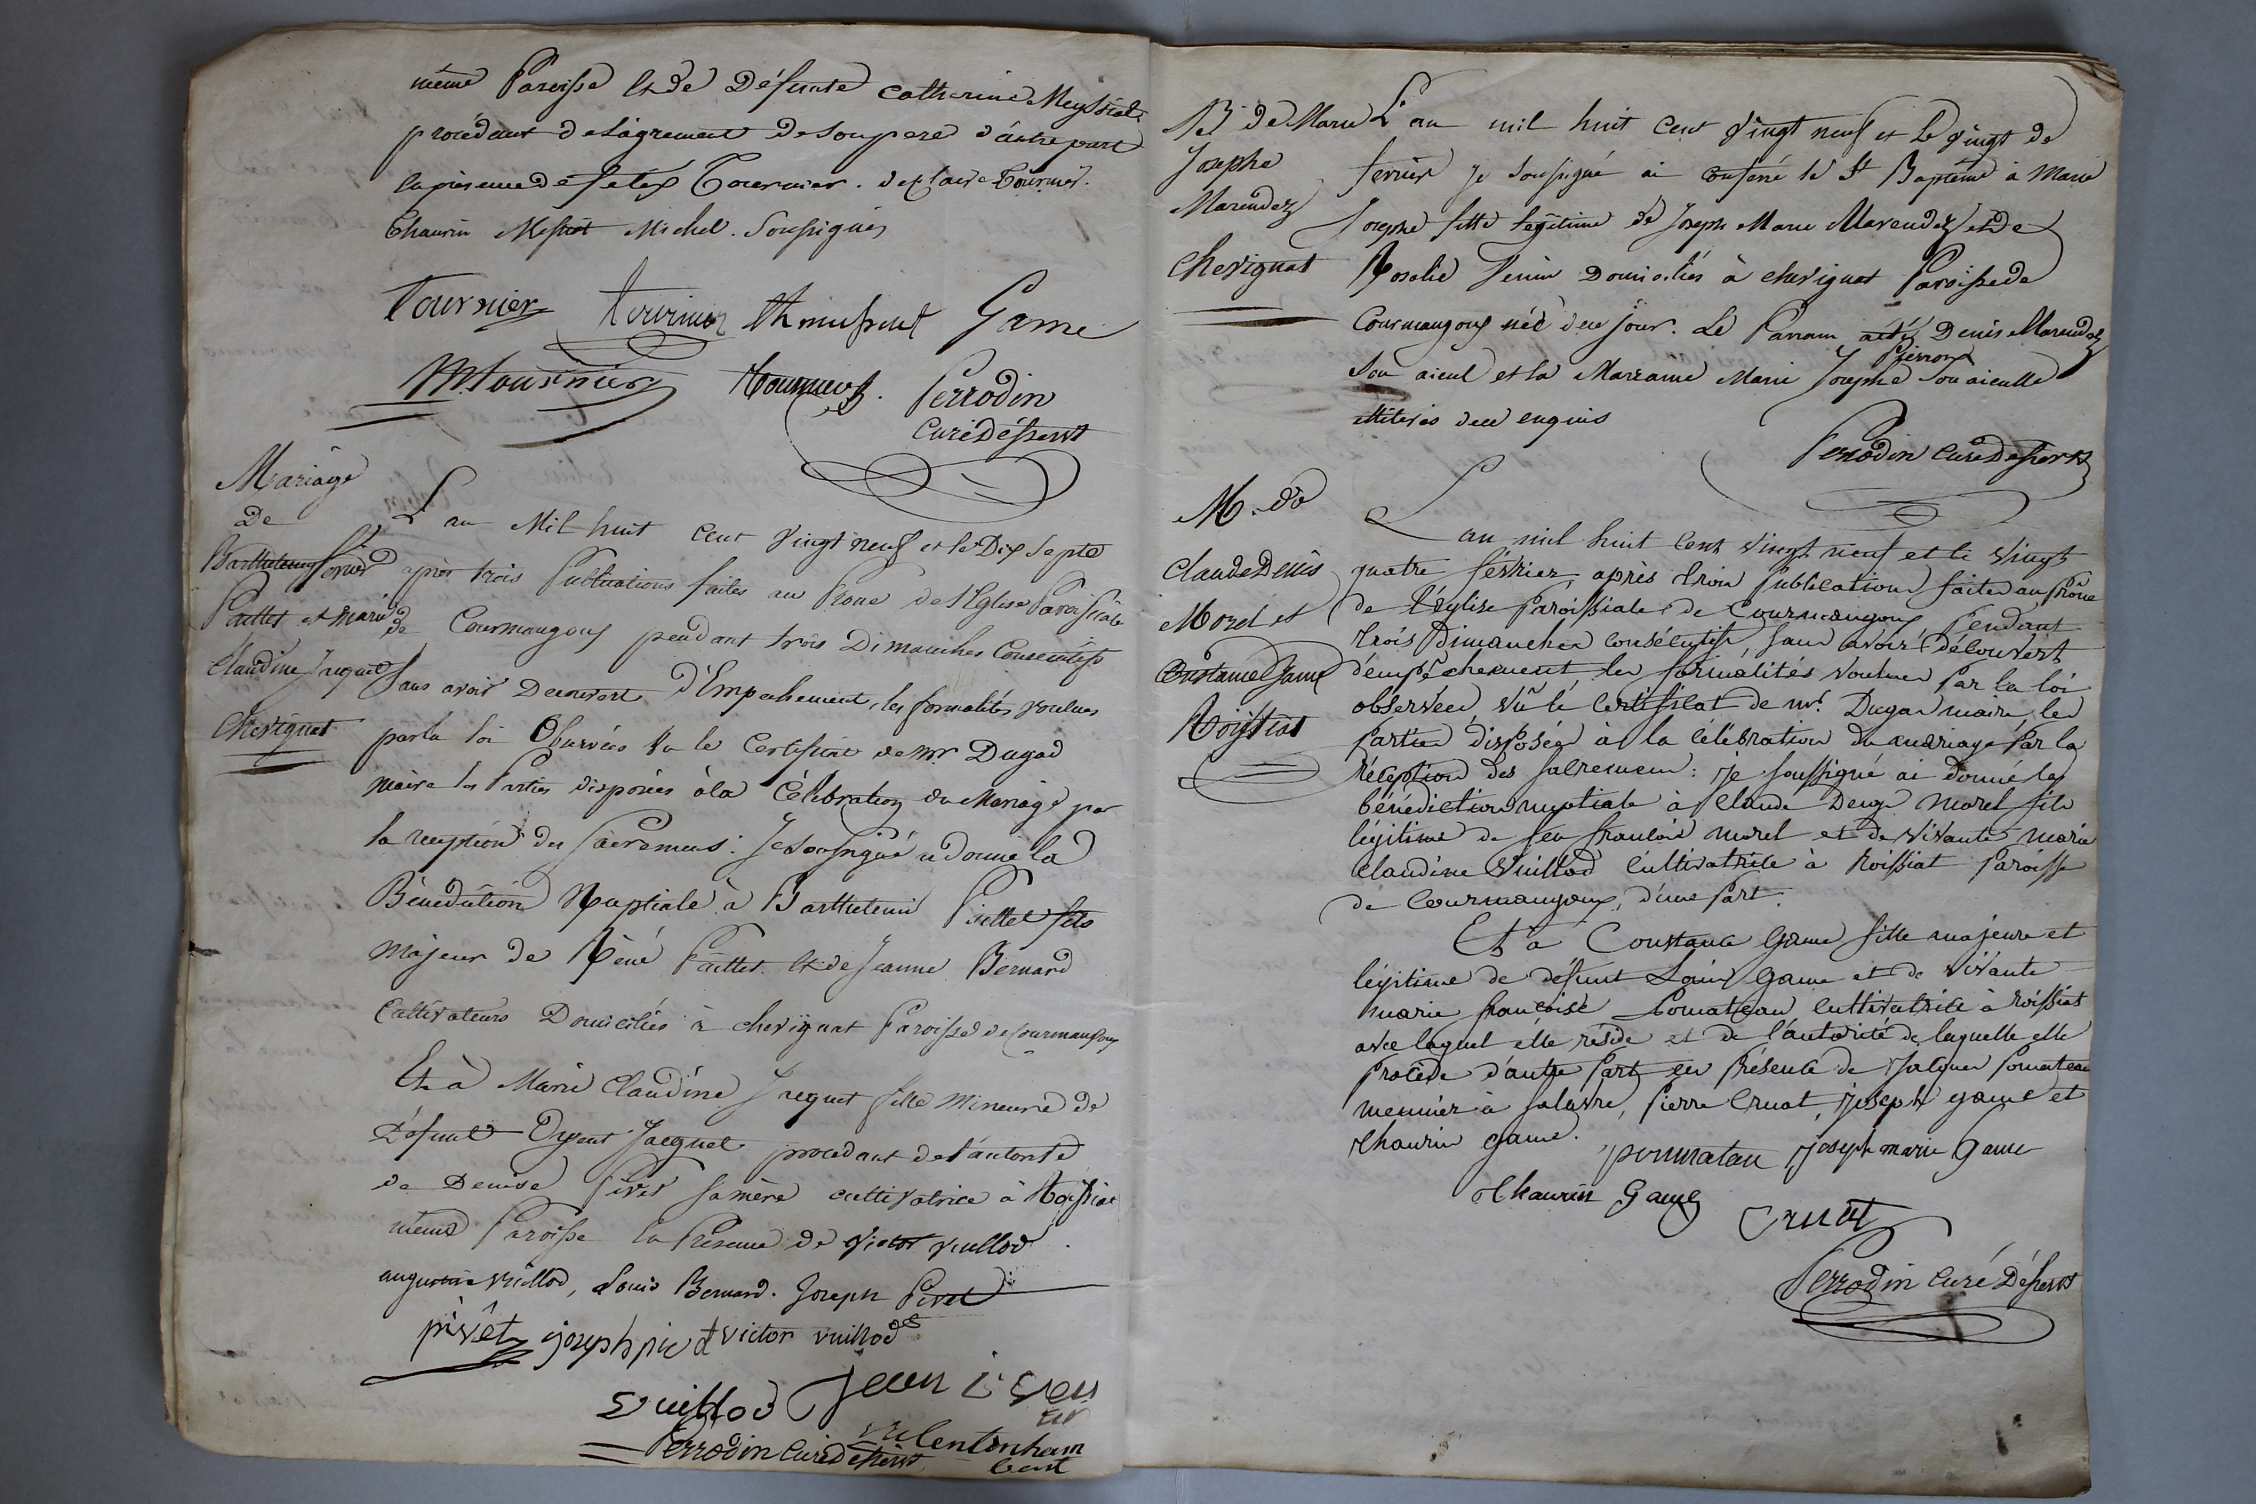 même Paroisse et de Défunte Catherine Meyssiat
procédant de l'agrement de son pere d'autre part
en présence de Tournier. de Claude Tournier.
Thaurin Michel. Soussignés
Tournier tournier Game
M tournier Tournier Perrodin
Curé Désservt
Mariage
De
Barthelemy
Paillet et Marie
Claudine Jaquet
Chevignat
L'an Mil huit Cent Vingt neuf et le Dix Sept
après trois Publications faites au Prone de l'Eglise Paroissiale
de Courmangoux pendant trois Dimanches Consecutifs
Sans avoir Decouvert d'Empechement, les formalités voulues
par la loi Observées Vu le Certificat de Mr Dugad
Maire les Parties disposées à la Célébration du Mariage par
la reception des Sacremens : Je Soussigné ai donné la
Bénédiction Nuptiale à Barthelemi Paillet fils
Majeur de Réné Paillet et de Jeanne Bernard
Cultivateurs Domiciliés à chevignat Paroisse de Courmangoux
Et à Marie Claudine Jaquet fille Mineure de
Défunt Jacquet procedant de l'autorité
de Denise Pivet sa mère cultivatrice à Roissiat
même Paroisse en Présence de Victor vuillod
augustin vuillod, Louis Bernard. Joseph Pivet
pivêt joseph pivet victor vuillod
vuillod jean
Perrodin Curé Desservt
B. de Marie
Josephe
Marendez
Chevignat
L'an mil huit Cent Vingt neuf et Le Vingt de
fevrier je Soussigné ai conféré le St Baptême à Marie
Josephe fille légitime de Joseph Marie Marendez et de
Rosalie Domiciliés à chevignat Paroisse de
Courmangoux née de ce jour. Le Parrain a été Denis Marendez
Son aieul et la Marraine Marie Josephe Pierron Son aieulle
illiterés de ce enquis
Perrodin Curé Desservt
M. de
Claude Denis
Morel et
Constance Game
Roissiat
L'an mil huit Cent vingt neuf et le vingt
quatre février, après trois publications faites au prône
de l'église paroissiale de Courmangoux pendant
trois Dimanches consécutifs, sans avoir découvert
d'empêchement les formalités voulues par la loi
observées, vû le certificat de mr. Dugad maire, les
parties disposées à la célébration du mariage par la
réception des sacremens : je soussigné ai donné la
bénédiction nuptiale à Claude Denis Morel fils
légitime de feu françois morel et de vivante marie
Claudine Vuillod cultivatrice à Roissiat Paroisse
de Courmangoux, d'une part.
Et à Constance Game fille majeure et
légitime de défunt Louis Game et de vivante
marie françoise Pomateau cultivatrice à Roissiat
avec laquel elle réside et de l'autorité de laquelle elle
procède d'autre part en présence de Jacques Pomateau
meunier à salavre, pierre Cruat, joseph game et
thaurin game.
pommatau joseph marie Game
thaurin Game
cruat
Perrodin Curé Désservt